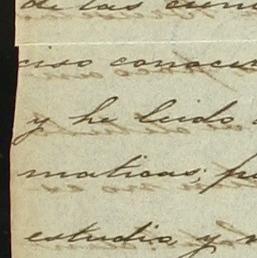 de las cien
ciso conocer
y he leido
maticas; p
estudio, y